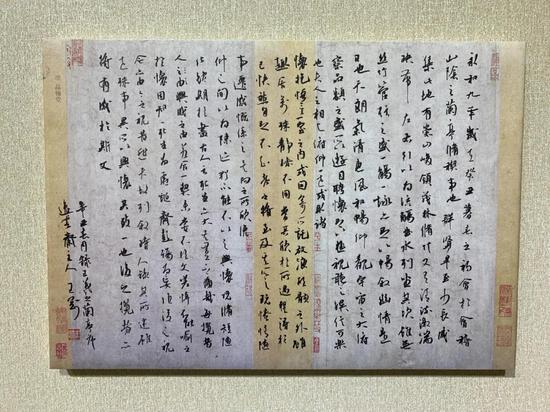 永和九年歲在癸丑暮春之初會於會稽
山陰之蘭亭脩稧事也群賢畢至少長咸
集此地有崇山峻領茂林脩竹又有清流激湍
映帶左右引以為流觴曲水列坐其次雖無
絲竹管弦之盛一觴一詠亦足以暢敘幽情是
日也天朗氣清惠風和暢仰觀宇宙之大俯
察品類之盛所以遊目騁懷足以極視聽之娛信可樂
也夫人之相與俯仰一世或取諸
懷抱悟言一室之內或因寄所託放浪形骸之外雖
趣舍萬殊靜躁不同當其欣於所遇暫得於
己快然自足不知老之將至及其所之既惓情隨
事遷感慨係之矣向之所欣俛
仰之間以為陳迹猶不能不以之興懷況脩短隨
化終期於盡古人云死生亦大矣豈不痛哉每攬昔
人興感之由若合一契未嘗不臨文嗟悼不能喻之
於懷固知一死生為虛誕齊彭殤為妄作後之視
今亦由今之視昔悲夫故列敘時人錄其所述雖
世殊事異所以興懷其致一也後之攬者亦
將有感於斯文
辛丑 月錄王羲之蘭亭序
齋主人王